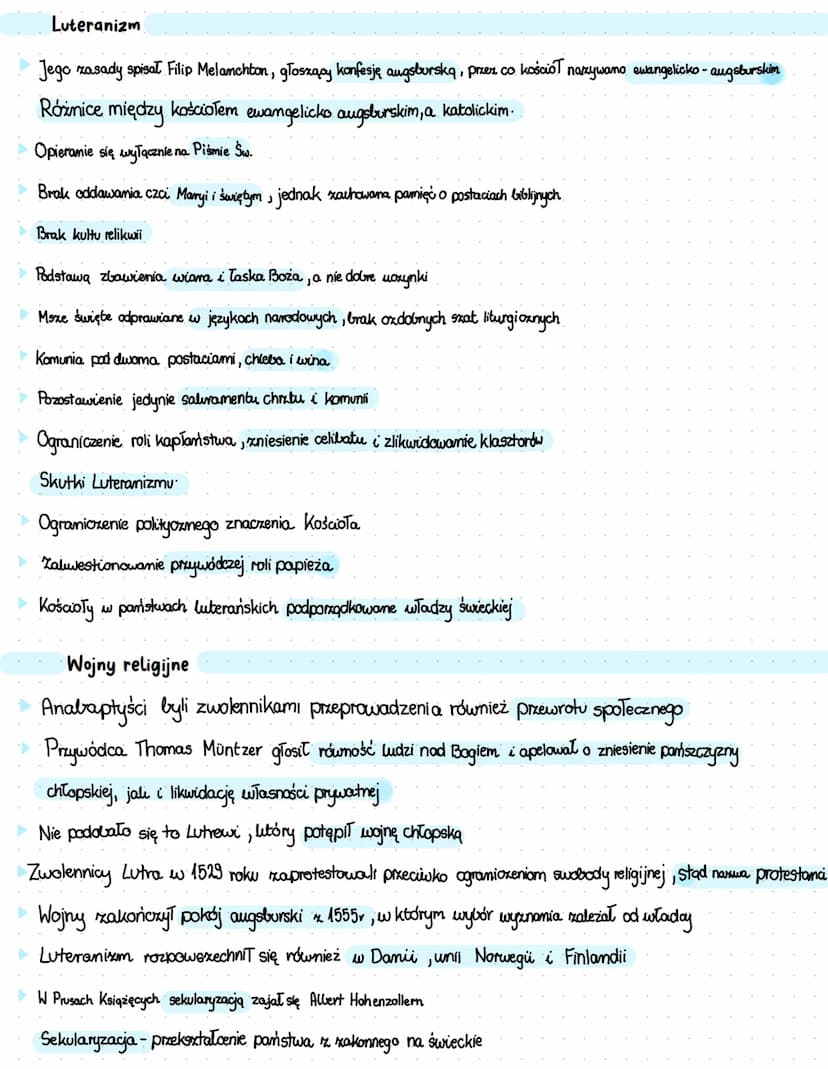 Luteranizm
Jego zasady spisał Filip Melanchton, głoszący konfesję augsburską, przez co kościół nazywano ewangelicko-augsburskim
Różnice między kościołem ewamgelicko augsburskim, a katolickim.
Opieranie się wyłącznie na Piśmie Św.
Brak oddawania czci Maryi i świętym, jednak zachowana pamięć o postaciach biblijnych
Brak kultu relikwii
Podstawą zbawienia wiara i łaska Boża, a nie dobre uczynki
Msze święte odprawiane w językach narodowych, brak ozdobnych szat liturgicznych
Komunia pod dwoma postaciami, chleba i wina
Pozostawienie jedynie sakramentu chrztu i komunii
Ograniczenie roli kapłaństwa, zniesienie celibatu i zlikwidowanie klasztorów
Skutki Luteranizmu.
Ograniczenie politycznego znaczenia Kościoła
Zakwestionowanie przywódczej roli papieża
Kościoły w państwach luterańskich podporządkowane władzy świeckiej
Wojny religijne
Anabaptyści byli zwolennikami przeprowadzenia również przewrotu społecznego
Przywódca Thomas Müntzer głosił równość ludzi nad Bogiem i apelował o zniesienie pańszczyzny
chłopskiej, jak i likwidację własności prywatnej
Nie podobało się to Lutrowi, który potępił wojnę chłopską
Zwolennicy Lutra w 1529 roku zaprotestowali przeciwko ograniczeniom swobody religijnej, stąd nazwa protestanci
Wojny zakończył pokój augsburski z 1555r, w którym wybór wyznania zależał od władcy
Luteranizm rozpowszechnił się również w Danii, unii Norwegii i Finlandii
W Prusach Książęcych sekularyzacją zajął się Albert Hohenzollern
Sekularyzacja - przekształcenie państwa z zakonnego na świeckie